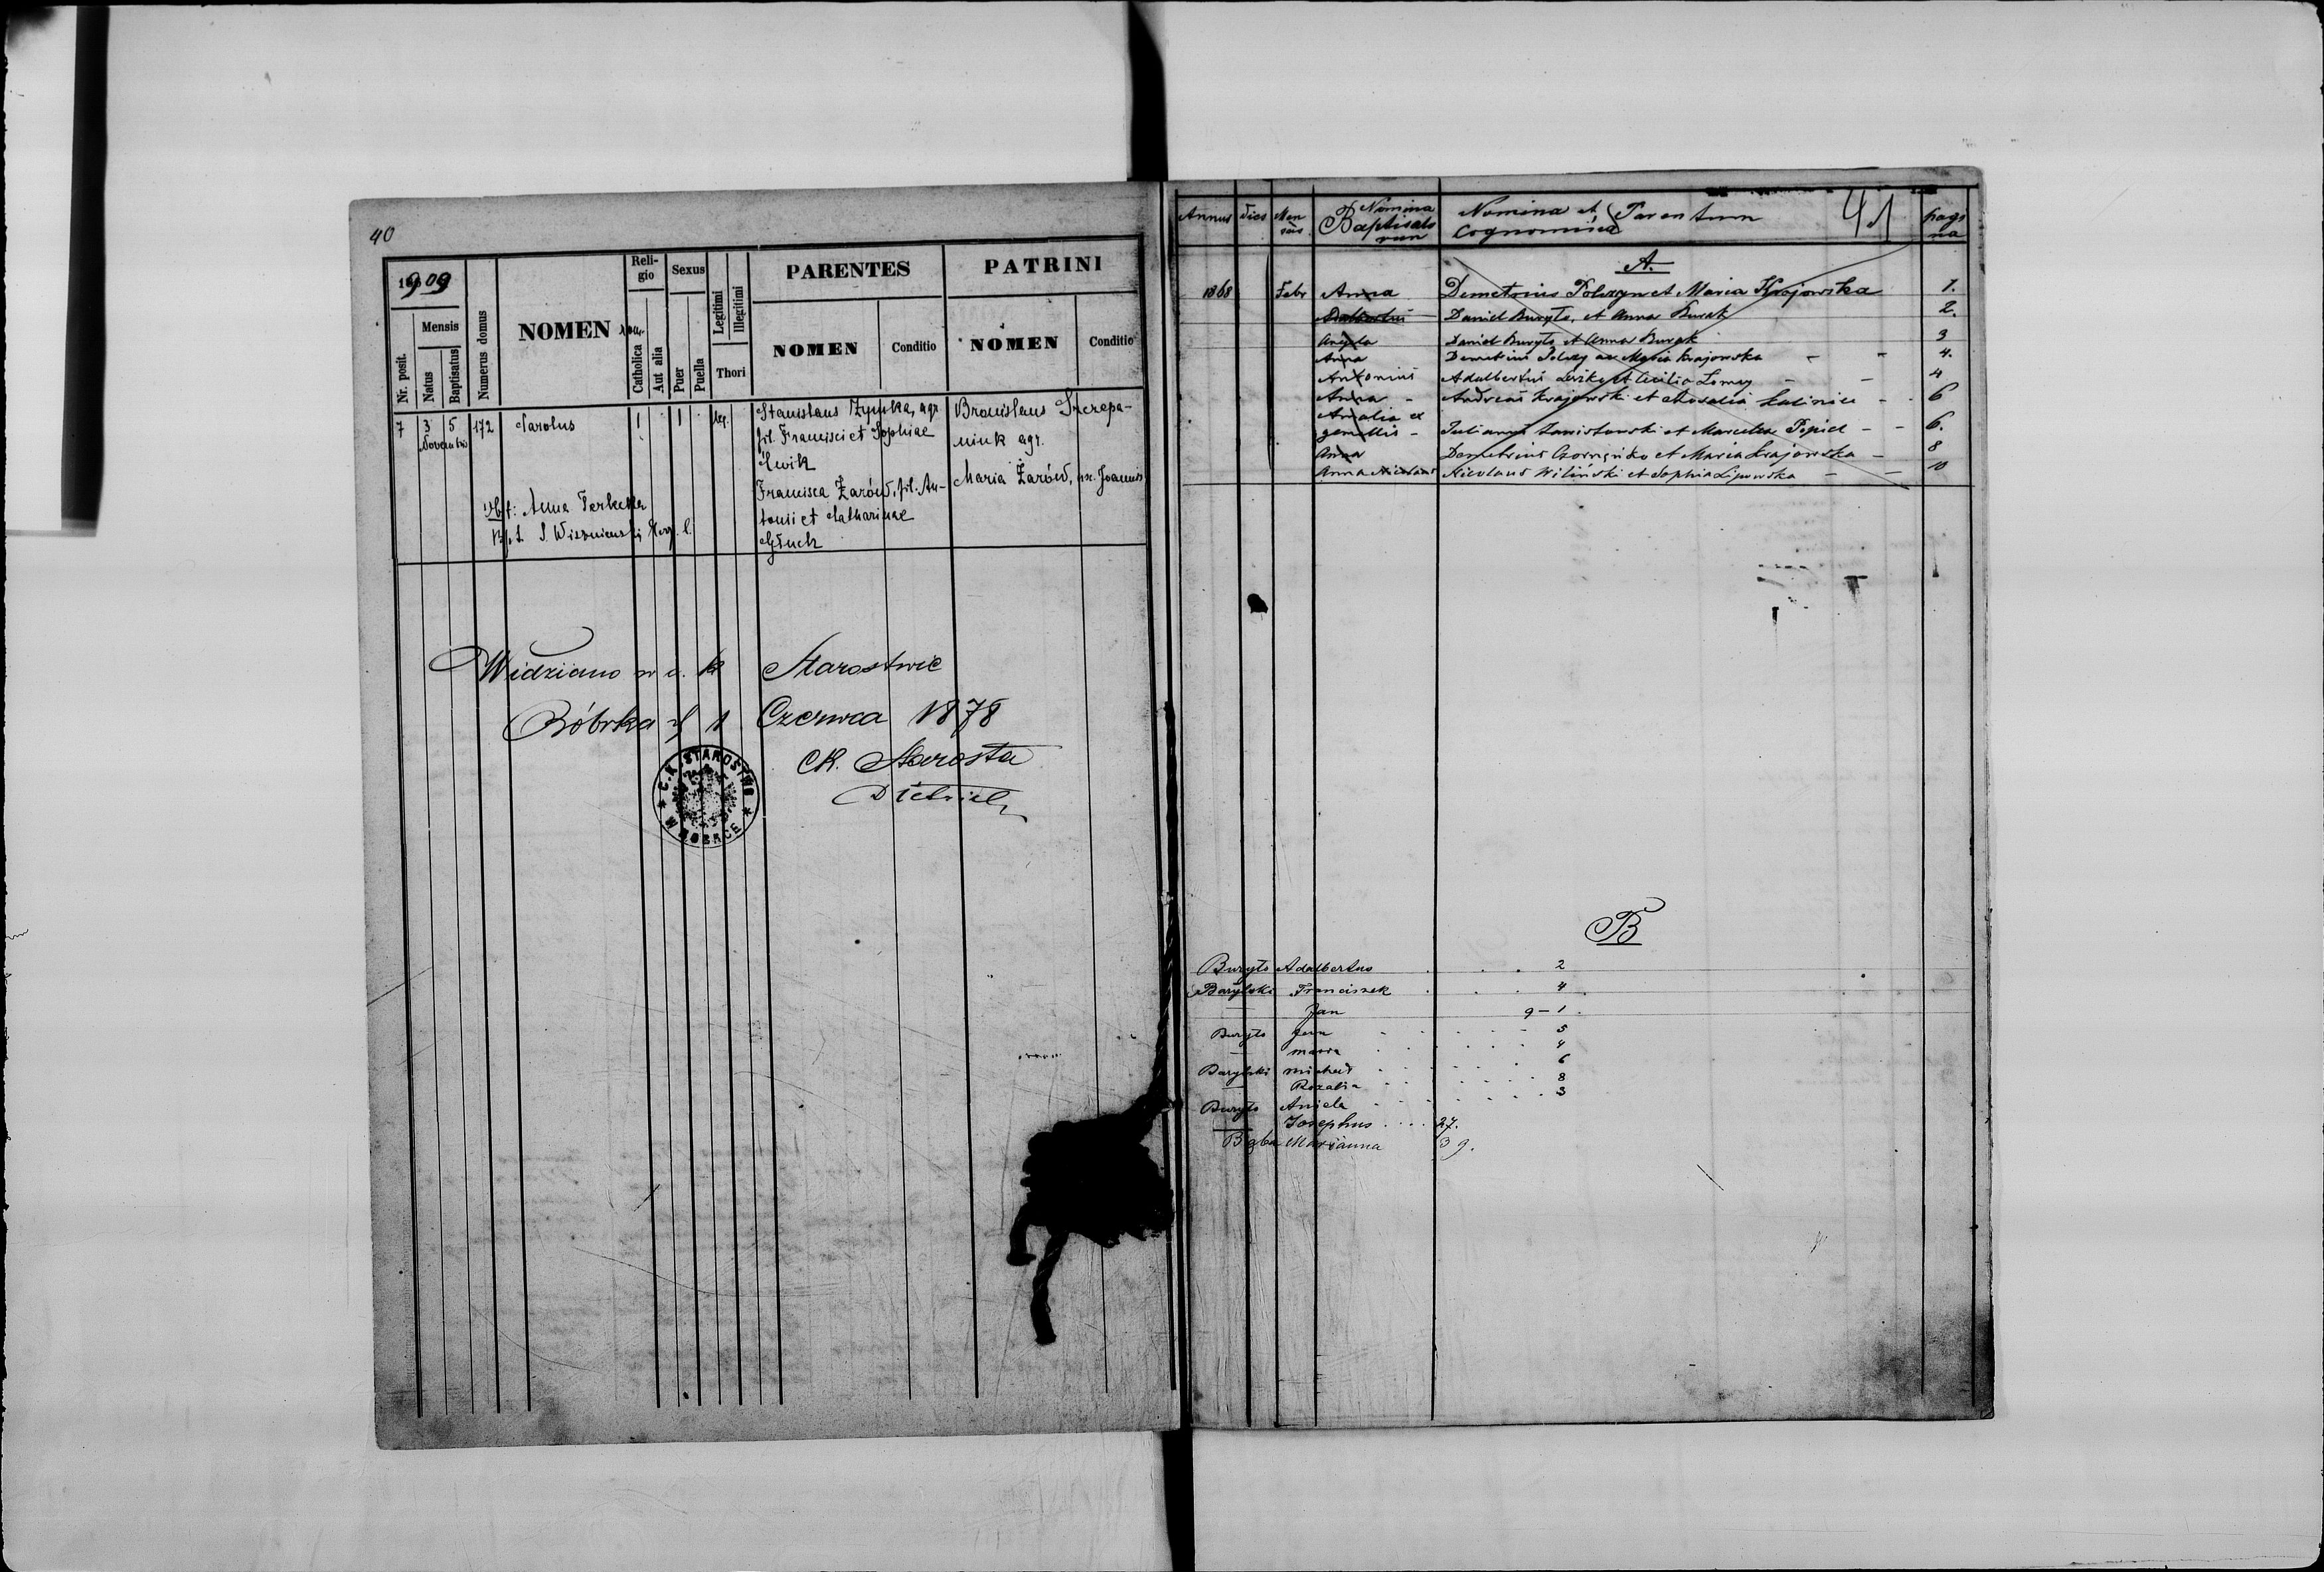 40
1909
Nr. posit.
Mensis
Natus
Baptisatus
Numerus domus
NOMEN
Religio
Catholica
Aut alia
Sexus
Puer
Puella
Legitimi
Illegitimi
Thori
PARENTES
NOMEN
Conditio
PATRINI
NOMEN
Conditio
7 3 5 172 Carolus 1 1 leg.
Novembris
Stanislaus Zymka, agr.
fil. Francisci et Sophiae
Ćwik
Francisca Żarów, fil. An-
tonii et Catharinae
Głuch
Bronislaus Szczepa-
niuk agr.
Maria Żarów, ux. Joannis
Obst: Anna
Bapt. S. Wiszniewski
Widziano w c. k. Starostwie
Bóbrka d 1 Czerwca 1878
CK. Starosta
Dietrich
C.K. STAROSTWO
W BOBRCE
Annus
dies
Mensis
Nomina Baptisatorum
Nomina et Cognomina Parentum
41
pagina
A.
1868 Febr Anna Demetrius Polszyn et Maria Krajowska 1.
Adalbertus Daniel Buryło, et Anna Burak 2.
Angela Daniel Buryło et Anna Burak 3
Anna Demetrius Polszy et Maria Krajowska - - 4.
Antonius Adalbertus et Cecilia - - 4
Anna - Andreas Krajowski et Rosalia - 6
Amalia et
gemellis - Julianus et Marcella - - 6.
Anna Demetrius et Maria Krajowska - 8
Anna Nicolaus Nicolaus Wiliński et Sophia Lipowska - - 10
B
Buryło Adalbertus . . . 2
Barylski Franciszek . . . 4
— Jan 9-1.
Buryło Jan - - - - - 5
— Maria . . . . . 4
Barylski Michał - - - - - 6
— Rozalia - - - - - 8
Buryło Aniela - - - - - 3
— Josephus .... 27.
Bąba Marianna 39.